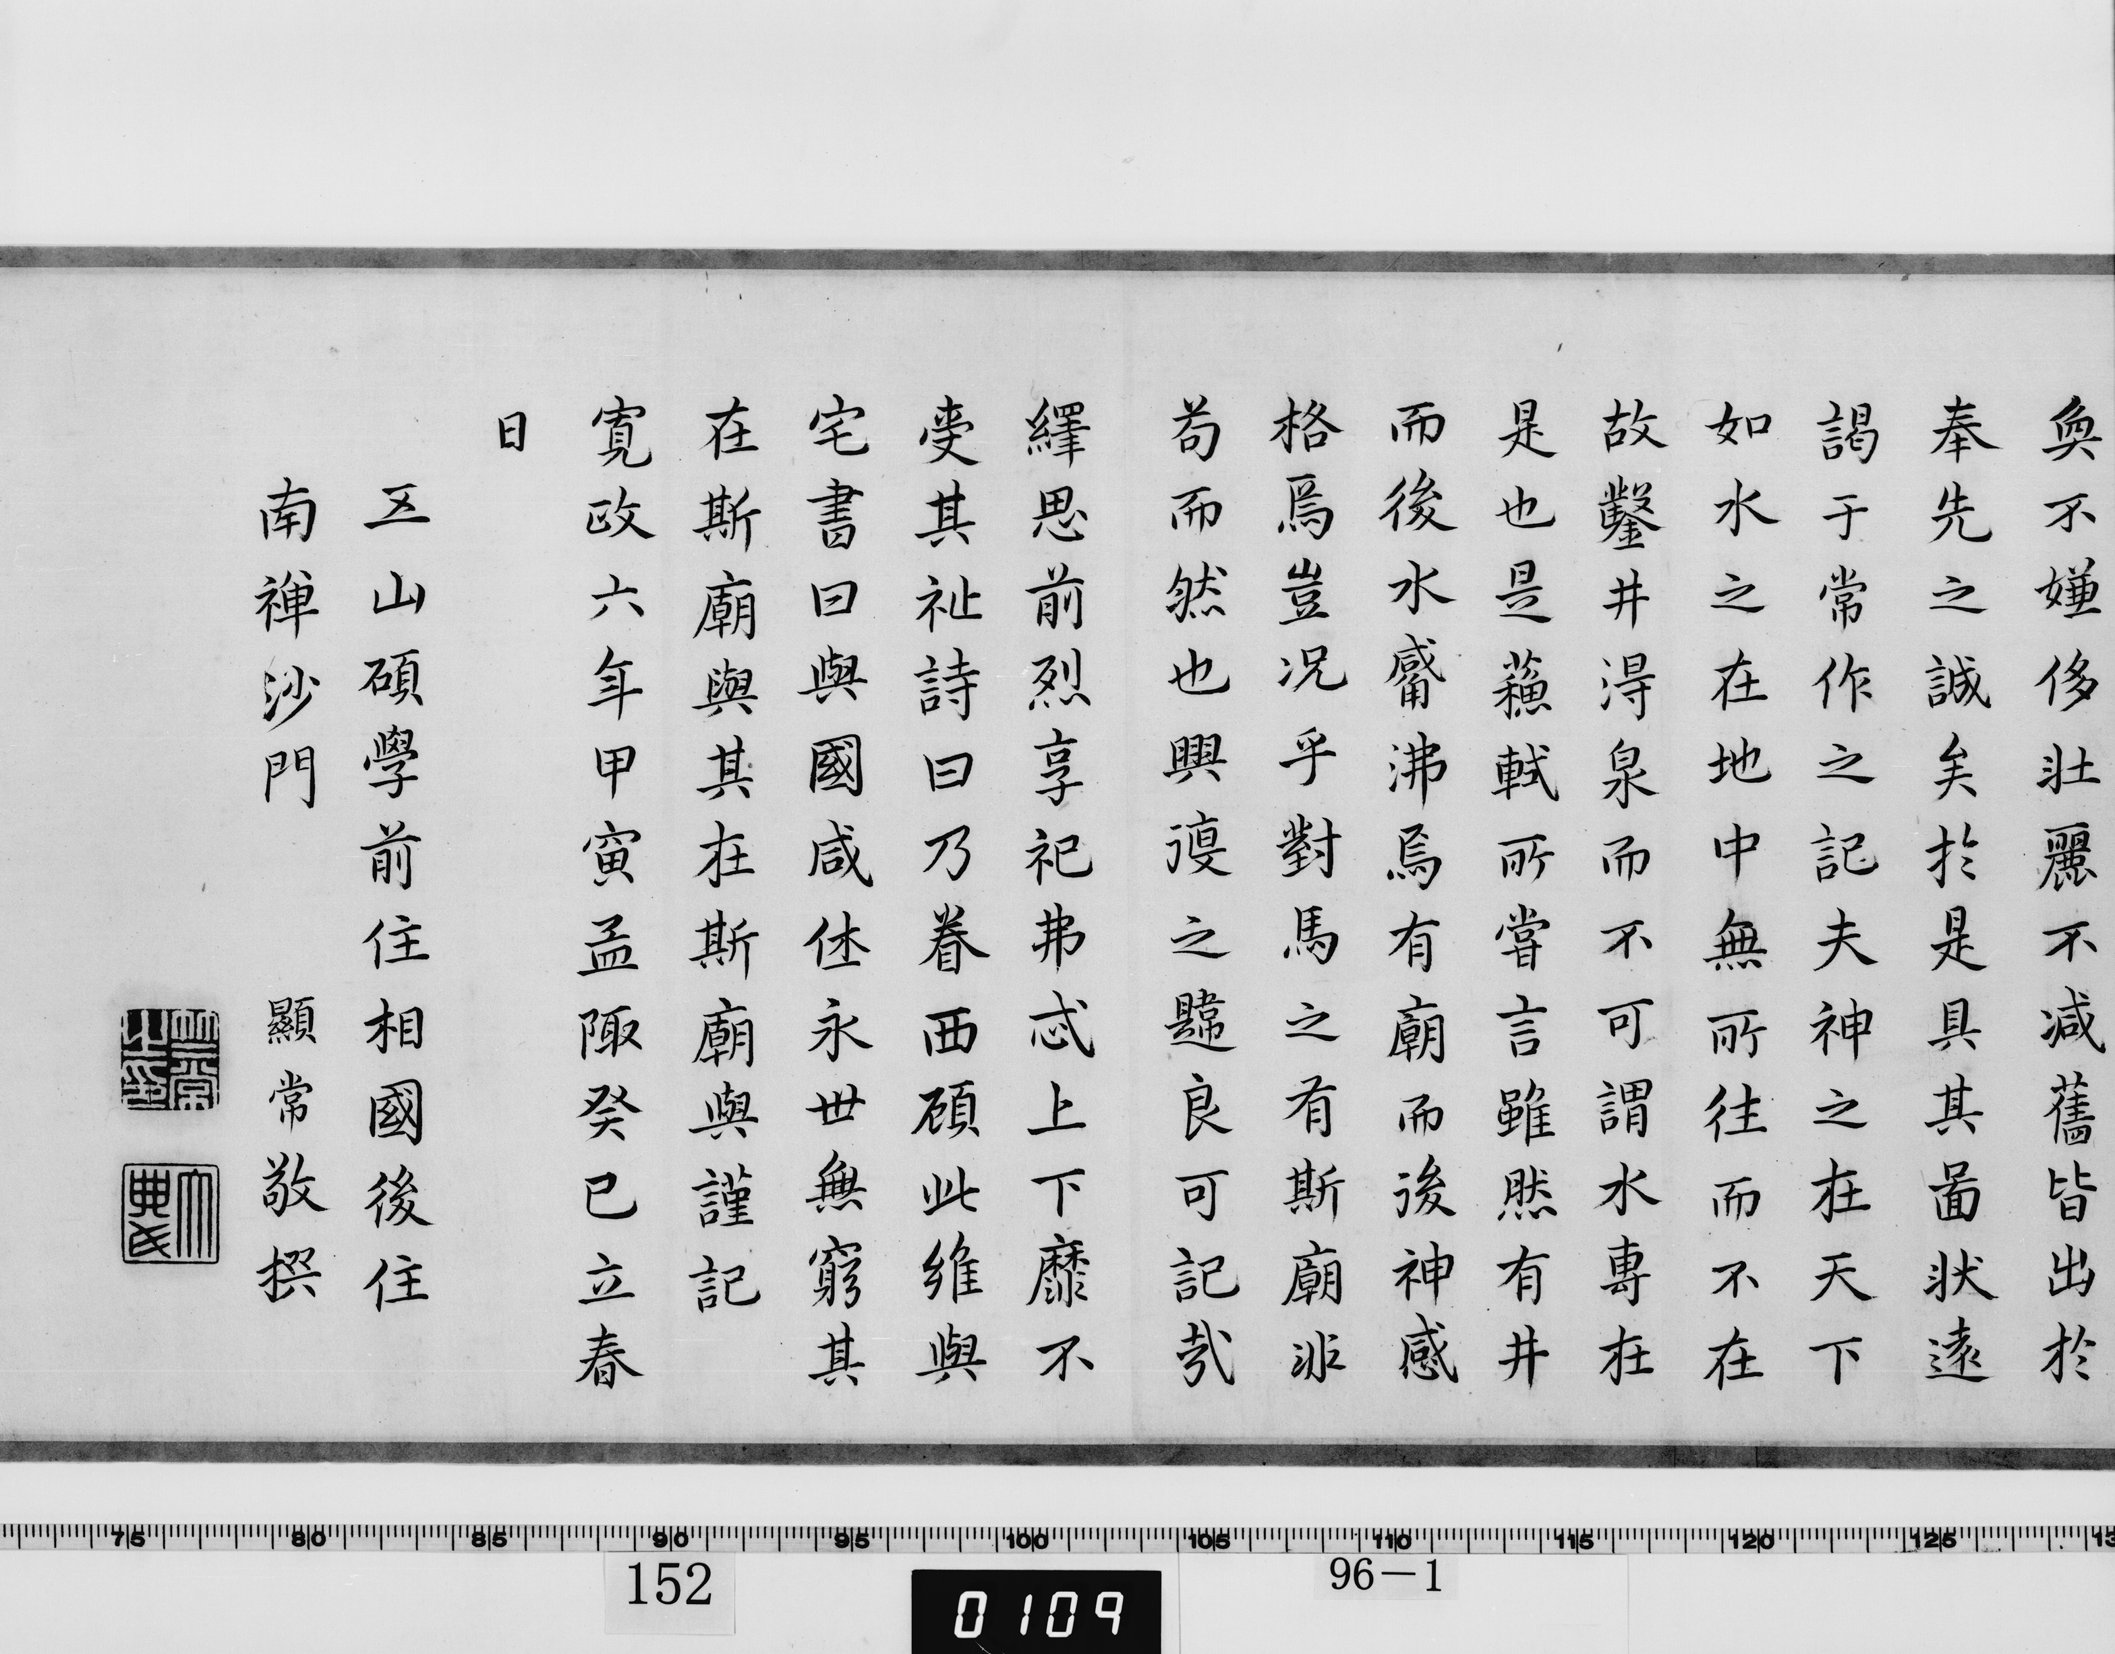 奐不嫌侈壯麗不減舊皆出於
奉先之誠矣於是具其圖狀遠
謁于常作之記夫神之在天下
如水之在地中無所往而不在
故鑿井淂泉而不可謂水專在
是也是蘓軾所嘗言雖然有井
而後水觱沸焉有廟而後神感
格焉豈况乎對馬之有斯廟非
苟而然也興復之韙良可記哉
繹思前烈享祀弗忒上下靡不
受其祉詩曰乃眷西顧此維與
宅書曰與國咸休永世無窮其
在斯廟與其在斯廟與謹記
寬政六年甲寅孟陬癸巳立春
日
五山碩學前住相國後住
南禅沙門 顯常敬撰
顯常之印
大典氏
75 80 85 90 95 100 105 110 115 120 125 13
152
0109
96-1